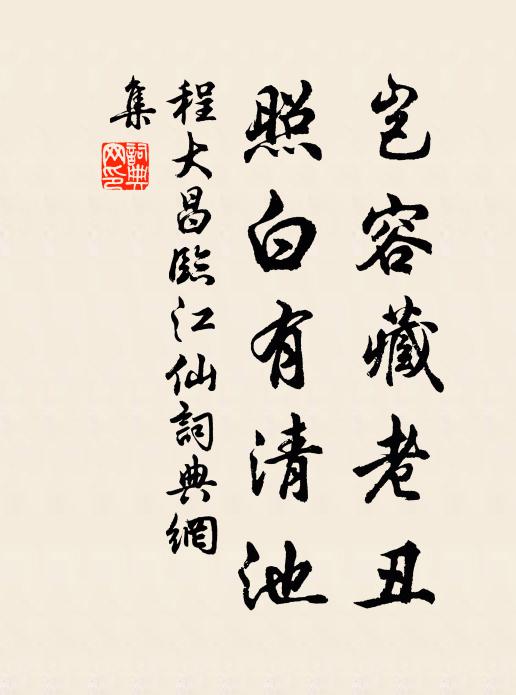 岂容藏老丑
照白有清池
程大昌臨江仙詞典網
集
詞典
网印